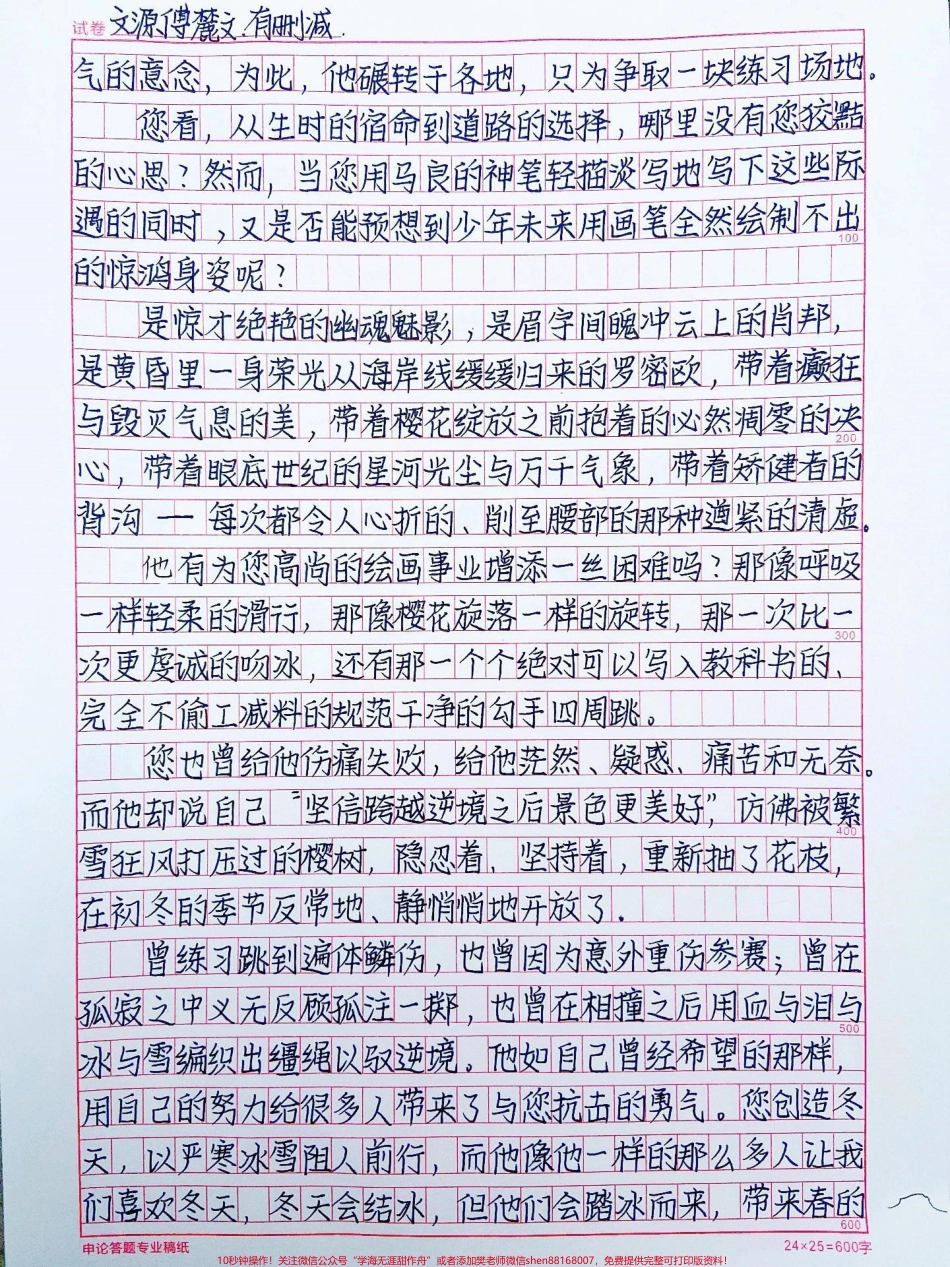 试卷 文源傅麓文.有删减.
气的意念，为此，他碾转于各地，只为争取一块练习场地。
您看，从生时的宿命到道路的选择，哪里没有您狡黠
的心思？然而，当您用马良的神笔轻描淡写地写下这些际
遇的同时，又是否能预想到少年未来用画笔全然绘制不出
100
的惊鸿身姿呢？
是惊才绝艳的幽魂魅影，是眉宇间魄冲云上的肖邦，
是黄昏里一身荣光从海岸线缓缓归来的罗密欧，带着癫狂
与毁灭气息的美，带着樱花绽放之前抱着的必然凋零的决
200
心，带着眼底世纪的星河光尘与万千气象，带着矫健者的
背沟——每次都令人心折的、削至腰部的那种遒紧的清虚。
他有为您高尚的绘画事业增添一丝困难吗？那像呼吸
一样轻柔的滑行，那像樱花旋落一样的旋转，那一次比一
300
次更虔诚的吻冰，还有那一个个绝对可以写入教科书的、
完全不偷工减料的规范干净的勾手四周跳。
您也曾给他伤痛失败，给他茫然、疑惑、痛苦和无奈。
而他却说自己“坚信跨越逆境之后景色更美好”，仿佛被繁
400
雪狂风打压过的樱树，隐忍着、坚持着，重新抽了花枝，
在初冬的季节反常地、静悄悄地开放了.
曾练习跳到遍体鳞伤，也曾因为意外重伤参赛；曾在
孤寂之中义无反顾孤注一掷，也曾在相撞之后用血与泪与
500
冰与雪编织出缰绳以驭逆境。他如自己曾经希望的那样，
用自己的努力给很多人带来了与您抗击的勇气。您创造冬
天，以严寒冰雪阻人前行，而他像他一样的那么多人让我
们喜欢冬天，冬天会结冰，但他们会踏冰而来，带来春的
600
申论答题专业稿纸 24×25=600字
10秒钟操作！关注微信公众号“学海无涯甜作舟”或者添加樊老师微信shen88168007，免费提供完整可打印版资料！